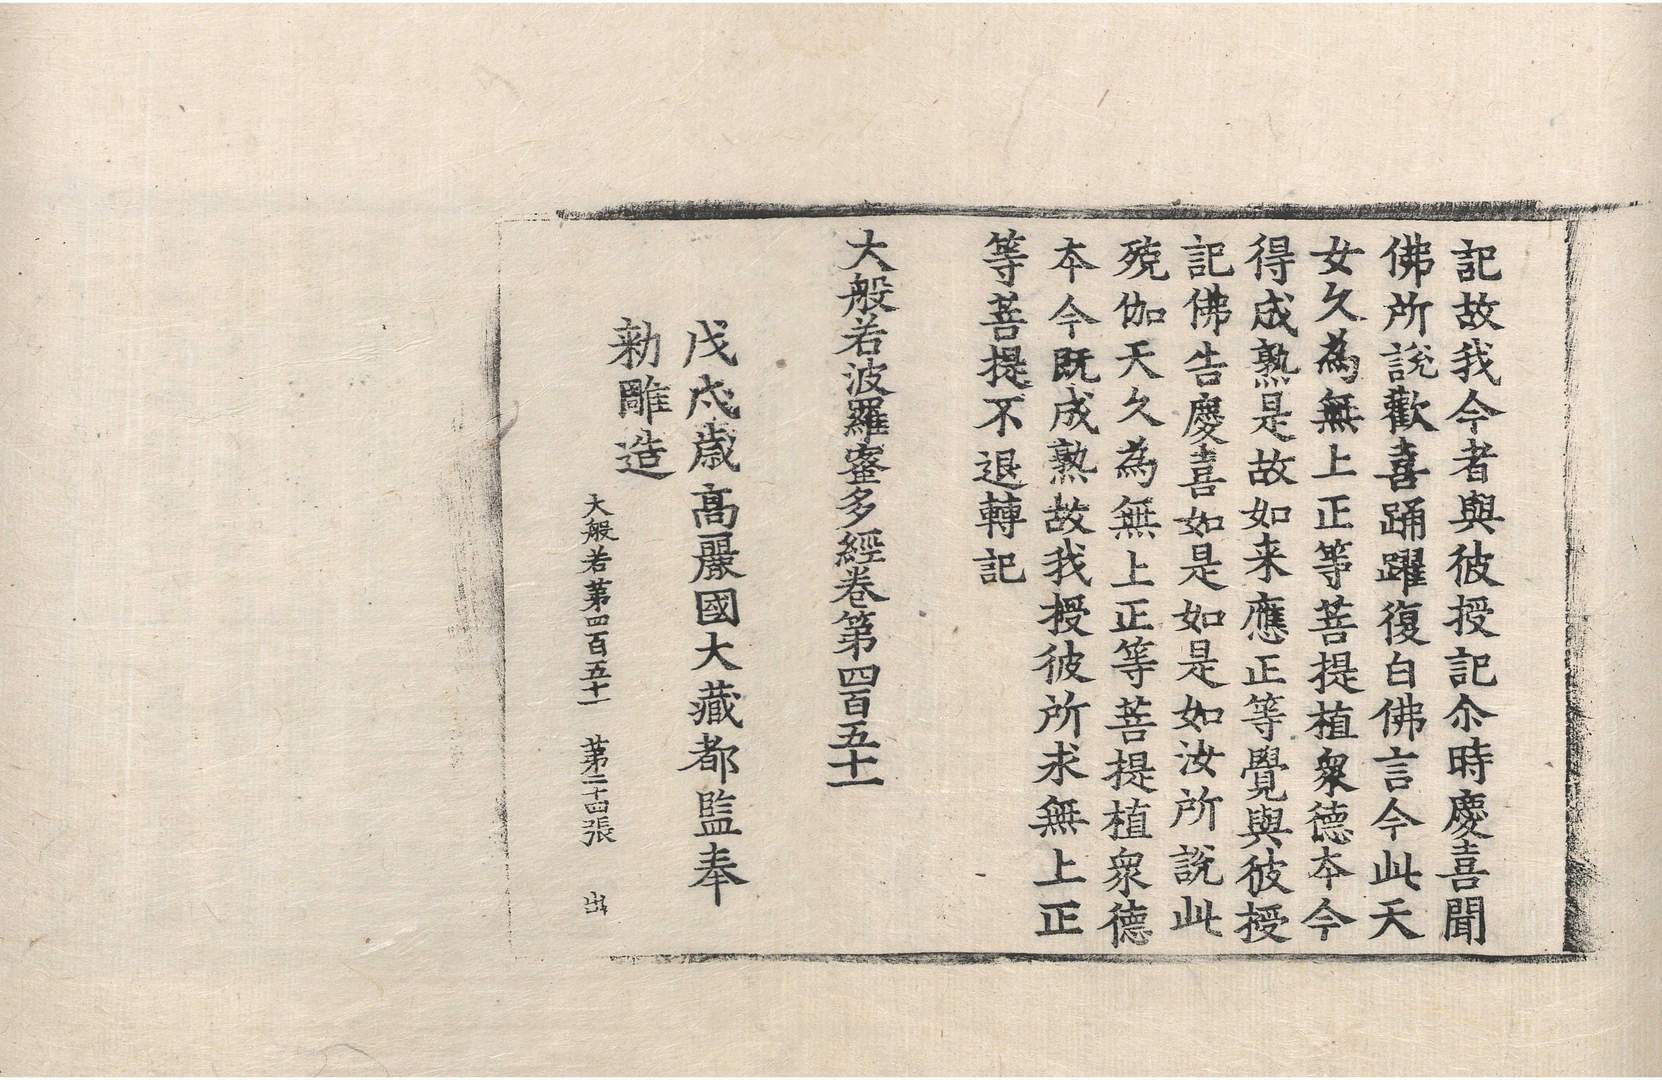 記故我今者與彼授記尒時慶喜聞
佛所說歡喜踊躍復白佛言今此天
女久為無上正等菩提植衆德本今
得成熟是故如来應正等覺與彼授
記佛告慶喜如是如是如汝所說此
殑伽天久為無上正等菩提植衆德
本今既成熟故我授彼所求無上正
等菩提不退轉記
大般若波羅蜜多經卷第四百五十一
戊戌歲高麗國大藏都監奉
勑雕造
大般若第四百五十一 第二十四張 出